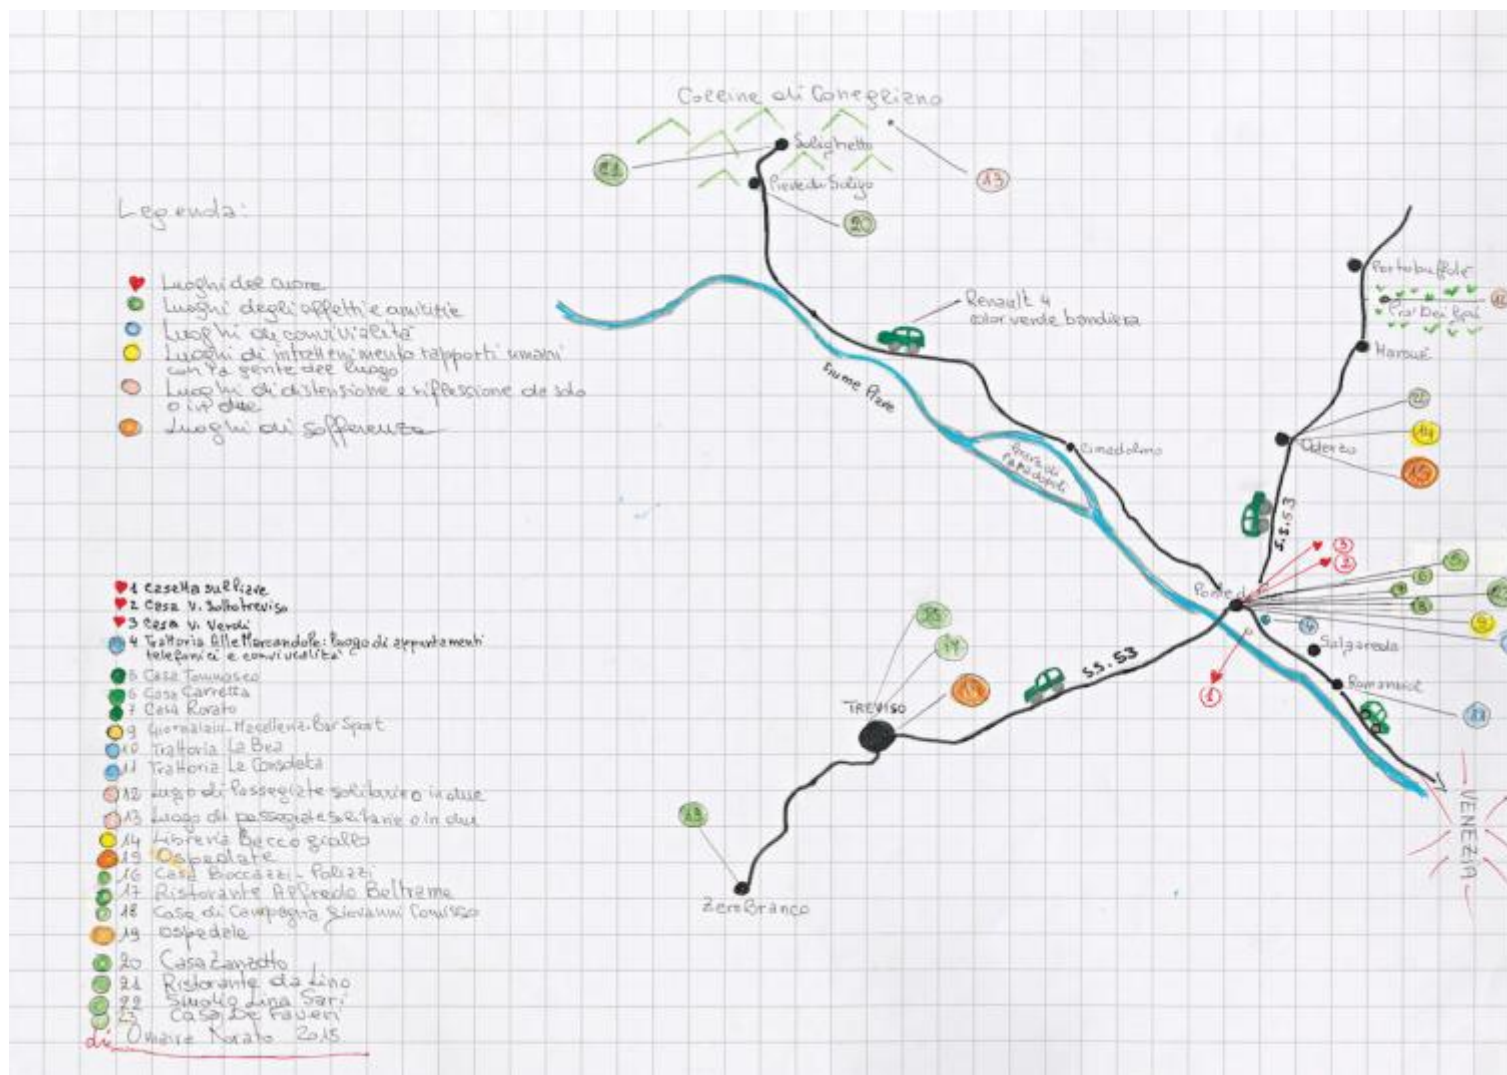 Colline di Conegliano
Solighetto
21
13
Pieve di Soligo
20
Legenda:
Luoghi del cuore
Luoghi degli affetti e amicizie
Luoghi di convivialità
Luoghi di intrattenimento rapporti umani
con la gente del luogo
Luoghi di distensione e riflessione da solo
o in due
Luoghi di sofferenza
Portobuffolè
Prà Dei Gai
Renault 4
color verde bandiera
Fiume Piave
Cimadolmo
Papadopoli
Oderzo
14
S.S. 53
3
2
6
8
9
4
Salgareda
1
11
TREVISO
17
S.S. 53
18
Zero Branco
VENEZIA
1 Casetta sul Piave
2 Casa V. Sottotreviso
3 Casa V. Verdi
4 Trattoria Alle Marcandole: luogo di appuntamenti
telefonici e convivialità
5 Casa Tommaseo
6 Casa Carretta
7 Casa Rorato
9 Giornalaio-Macelleria-Bar Sport
10 Trattoria La Bea
11 Trattoria La Consoleta
12 Lugo di Passegiate solitarie o in due
13 Luogo di passegiate solitarie o in due
14 Libreria Becco giallo
15 Ospedale
16 Casa
17 Ristorante Alfredo Beltrame
18 Casa di Campagna Giovanni Comisso
19 ospedale
20 Casa Zanzotto
21 Ristorante da Lino
22 Studio Lina Sari
23 Casa De Faveri
di Omaire Rorato 2015